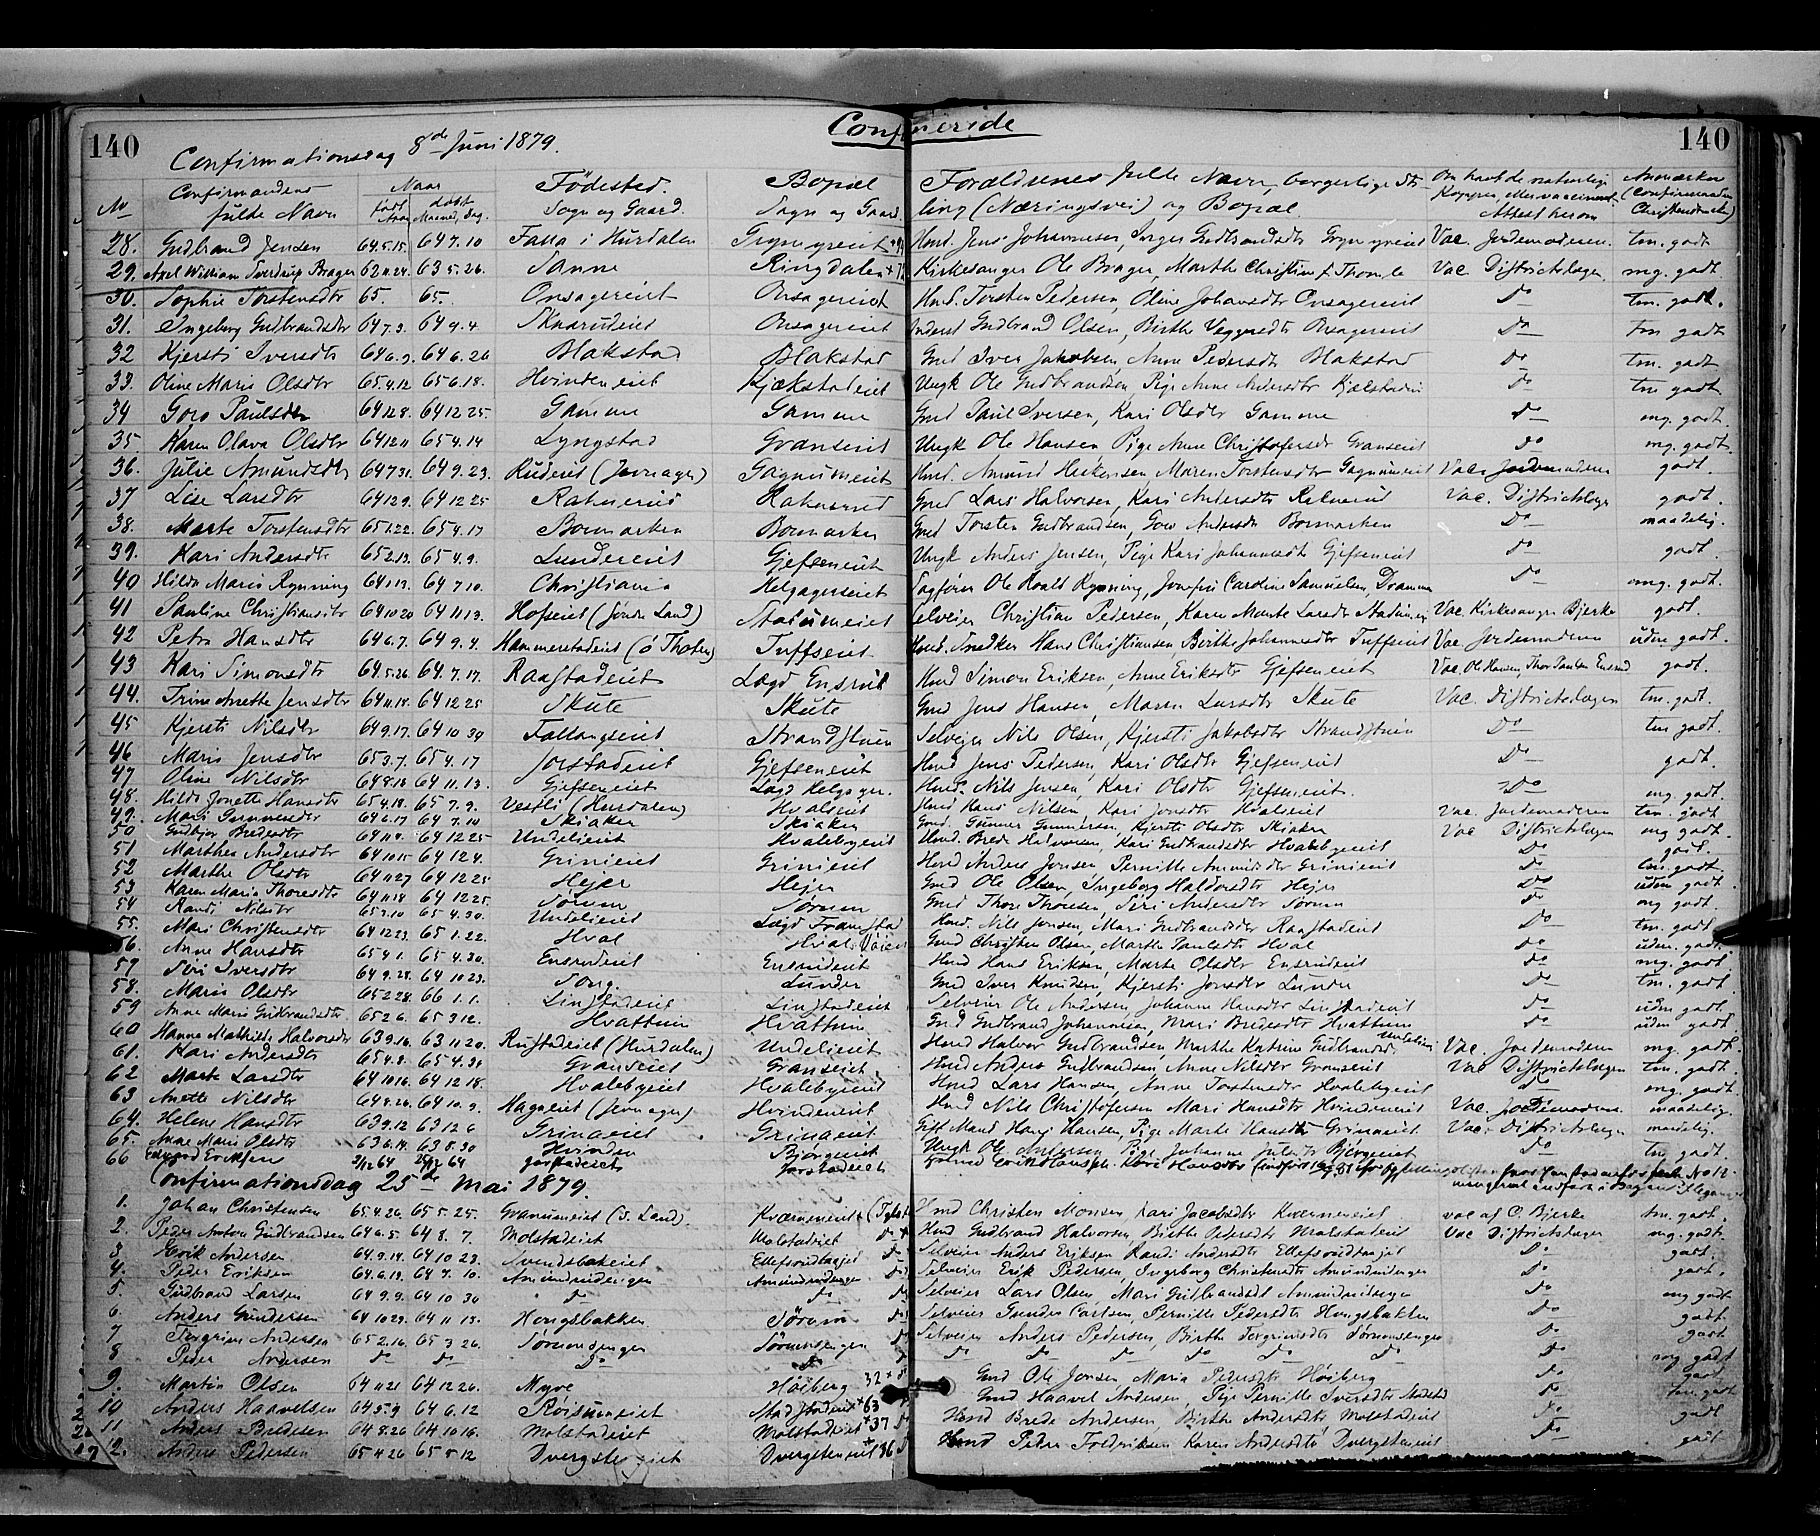 140 Confirmeride 140
Confirmationsdag 8de Juni 1879.
No Confirmandens fulde Navn Naar født Aar, Maaned, Dag. døbt Fødested. Sogn og Gaard. Bopæl Sogn og Gaard. Forældrenes fulde Navn, borgerlige Stilling (Næringsvei) og Bopæl. Om havt de naturlige Kopper eller vaccineret Attest herom Anmærkn (Confirmanden Christendomsk)
28. Gudbrand Jensen 64.5.15. 64 7.10 Falla i Hurdalen Hmd. Jens Johannesen, Vac. Jordemoderen. tm. godt
29. Axel William Sverdrup Brager 62 11.24. 63 5.26. Sanne Ringdalen Kirkesanger Ole Brager, Marthe Christine Vac. Districtslægen mg. godt
30. Sophie Torstensdtr 65. 65. Onsagereiet Onsagereiet Hmd. Torsten Pedersen, Oline Johansdtr Onsagereiet Do tm. godt.
31. Ingeborg Gudbrandsdtr 64 7.3. 64 9.4 Skiarudeiet Onsagereiet Inderst Gudbrand Olsen, Birthe Onsagereiet Do tm godt
32 Kjersti Iversdtr 64 6.9. 64 6.26 Blakstad Blakstad Gmd Iver Jakobsen, Anne Pedersdtr Blakstad Do tm. godt
33. Oline Marie Olsdtr 65.4.12 65.6.18. Hvindeneiet Kjækstadeiet Ungk Ole Gudbrandsen, Pige Anne Andersdtr Do tm godt
34 Goro Paulsdtr 64 12.8. 64 12 25. Gamme Gamme Gmd Paul Iversen, Kari Olsdtr Gamme Do mg. godt.
35 Karen Olava Olsdtr 64 12 11 65 4.14 Lyngstad Granseiet Ungk Ole Hansen, Pige Anne Christofersdtr Granseiet Do mg. godt.
36. Julie Amundsdtr 64 7 31. 64 9.23. Ruderiet (Jevnager) Gagnumeiet Hmd. Amund Maren Torstensdtr Gagnumeiet Vac. Jordemoderen godt.
37 Lise Larsdtr 64 12 9. 64 12 25 Gmd Lars Halvorsen, Kari Andersdtr Vac. Districtslægen godt.
38. Marte Torstensdtr 65 1.22. 65 4.17 Bormarken Bormarken Gmd Torsten Gudbrandsen, Goro Andersdtr Bormarken Do maadelig.
39. Kari Andersdtr 65 2.13. 65 4.9. Lundereiet Gjefseneiet Ungk Anders Jensen, Pige Kari Johannesdtr Gjefseneiet Do godt.
40 Hilda Marie Rynning 64 1 13. 64 7 10. Christiania Helgagerseiet Sagfører Ole Roald Rynning, Josefine Caroline Samuelsen, Drammen Do mg. godt.
41 Pauline Christiansdtr 64 10 20 64 11 13. Hofseiet (Søndre Land) Statumeiet Selveier Christian Pedersen, Karen Marte Larsdtr Vac. Kirkesanger Bjerke godt.
42 Petra Hansdtr 64 6.7. 64 9.4. Hammerstadeiet (ø Thoten) Tuffseiet Hmd. Snedker Hans Christiansen, Birthe Johannesdtr Tuffseiet Vac Jordemoderen udm. godt.
43 Kari Simonsdtr 64.5.26. 64.7.17. Raastadeiet Lægd Ensrud Hmd Simon Eriksen, Anne Eriksdtr Gjefseneiet Vac. Ole Hansen, Ensrud godt.
44. Trine Anette Jensdtr 64 11.18. 64 12 25 Skute Skute Gmd Jens Hansen, Maren Larsdtr Skute Vac. Districtslægen tm. godt.
45 Kjersti Nilsdtr 64 9.17. 64 10 30 Fallangseiet Strandstuen Selveier Nils Olsen, Kjersti Jakobsdtr Strandstuen Do tm godt.
46 Marie Jensdtr 65 3.7. 65 4.17 Jorstadeiet Gjefseneiet Hmd Jens Pedersen, Kari Olsdtr Gjefseneiet Do godt.
47 Oline Nilsdtr 64 8.16 64 11.13. Gjefseneiet Lægd Helgager. Hmd. Nils Jensen, Kari Olsdtr Gjefseneiet. Do mg. godt.
48. Hilda Jonette Hansdtr 65 4.18. 65 7.9. Vestli (Hurdalen) Hvalseiet Hmd Hans Nilsen, Kari Jonsdtr Hvalseiet Vac. Jordemoderen tm. godt
49. Mari Gunnersdtr 64 6.17 64 7.10 Skiaker Skiaker Gmd. Gunner Gunnersen, Kjersti Olsdtr Skiaker Vac Districtslægen mg godt
50 Gudbjør Bredesdtr 64 11 8. 64 12 25 Undelieiet Hvalebyeiet Hmd. Brede Halvorsen, Kari Gudbrandsdtr Hvalebyeiet Do godt.
51 Marthea Andersdtr 64 10 15 64 12 4. Grinieiet Grinieiet Hmd Anders Jensen Pernille Amundsdtr Grinieiet Do tm. godt
52 Marthe Olsdtr 64 11 27 64 12 25 Hejer Hejer Gmd Ole Olsen, Ingeborg Haldorsdtr Hejer Do udm godt.
53 Karen Maria Thoresdtr 64 11 18 64 12 25. Sørum Sørum Gmd Thore Thoresen, Siri Andersdtr Sørum Do mg godt.
54 Randi Nilsdtr 65 3.10 65 4.30. Undelieiet Lægd Framstad Hmd. Nils Jensen, Mari Gudbrandsdtr Raastadeiet Do tm. godt.
55. Mari Christensdtr 64 12 23. 65 1.22. Hval Hval Gmd Christen Olsen, Marthe Paulsdtr Hval Do udm. godt.
56. Anne Hansdtr 65 4 1. 65 4.30. Ensrudeiet Ensrudeiet Hmd Hans Eriksen, Marte Olsdtr Ensrudeiet Do mg. godt.
57 Siri Iversdtr 64 9.28. 64 10 23. Song. Lunder Gmd Iver Knudsen, Kjersti Lunder Do tm. godt.
58. Marie Olsdtr 65 2 28. 66 1.1. Lingstadeiet Lingstadeiet Selveier Ole Andersen, Johanne Hansdtr Lingstadeiet Do udm godt.
59 Anne Marie Gudbrandsdtr 65 2 6. 65 3 12. Hvattum Hvattum Gmd Gudbrand Johannesen, Mari Bredesdtr Hvattum Do udm godt.
60 Hanne Mathilde Halvorsdtr 63 9.16. 63 11 20. Rustadeiet (Hurdalen) Undelieiet Hmd Halvor Gudbrandsen, Marthe Katrine Gudbrandsdtr Undelieiet Vac. Jordemoderen mg. godt.
61. Kari Andersdtr 65 4.8. 65 4.30 Granseiet Granseiet Hmd Anders Gudbrandsen, Anne Nilsdtr Granseiet Vac Districtslægen tm. godt.
62 Marte Larsdtr 64 10 16. 64 12 18. Hvalebyeiet Hvalebyeiet Hmd Lars Hansen, Anne Hvalebyeiet Do mg. godt.
63 Anette Nilsdtr 64 8.26. 64 10.9. Hagaeiet (Jevnager) Hvindeneiet Hmd Nils Christofersen Mari Hansdtr Hvindeneiet Vac. Jordemoderen maadelig.
64. Helene Hansdtr 63 9.12 63 12 6 Grinaeiet Grinaeiet Gift Mand Hans Hansen, Pige Marte Hansdtr Grinaeiet Vac. Districtslægen maadelig.
65. Anne Marie Olsdtr 63 6.14. 63 8.30 Hvinden Bjørgeeiet Ungk Ole Andersen, Pige Johanne Bjørgeeiet Do tm godt.
66 Edvard Eriksen 2/12 64 26/12 64 Jorstadeiet Jorstadeiet
Confirmationsdag 25de Mai 1879.
1. Johan Christensen 65 4.26. 65 5.25. Granumeiet (S. Land). Kværneneiet Hmd Christen Monsen Kari Jacobsdtr Kværneneiet vac af C. Bjerke tm. godt.
2. Peder Anton Gudbrandsen 64 6.5 64 8.7. Molstadeiet Molstadeiet Hmd Gudbrand Halvorsen, Birthe Pedersdtr Molstadeiet Vac Districtslægen mg. godt.
3 Erik Andersen 64.9.14. 64 10 23. Svendsbakeiet Ellefsrudenget Selveier Anders Eriksen Randi Andersdtr Ellefsrudenget Do godt.
4. Peder Eriksen 64.6.13. 64 7.10. Amundrudengen Amundrudengen Selveier Erik Pedersen, Ingeborg Christensdtr Amundrudengen Do godt.
5. Gudbrand Larsen 64 9.9. 64 10 30 Do Do Selveier Lars Olsen, Mari Gudbrandsdtr Amundrudengen Do mg godt
6. Anders Gundersen 64 10 29. 64 11 13. Hongsbakken Sørum Selveier Gunder Carlsen, Pernille Pedersdtr Hongsbakken Do godt
7 Torgrim Andersen 65 2.16. 65 3 26. Sørumsengen Sørumsengen Selveier Anders Pedersen, Birthe Torgrimsdtr Sørumsengen Do godt
8 Peder Andersen Do Do Do Do Do Do Do Do Do Do Do mg godt
9. Martin Olsen 64 11 21 64 12 26. Myve Høiberg 32 Gmd Ole Jensen Maria Pedersdtr Høiberg Do godt
10 Anders Haavelsen 64 5.9 64 6.12 Roisumeiet 63 Gmd Haavel Andersen, Pige Pernille Iversdtr Do tm. godt
11. Anders Bredesen 64 8.20 64 10 16. Molstadeiet Molstadeiet 37 Hmd Brede Andersen, Birthe Andersdtr Molstadeiet Do godt
12. Anders Pedersen 65 4 26 65 5 12 Dvergsteneiet Dvergsteneiet 36 Hmd Peder Fredriksen Karen Andersdtr Dvergsteneiet Do godt